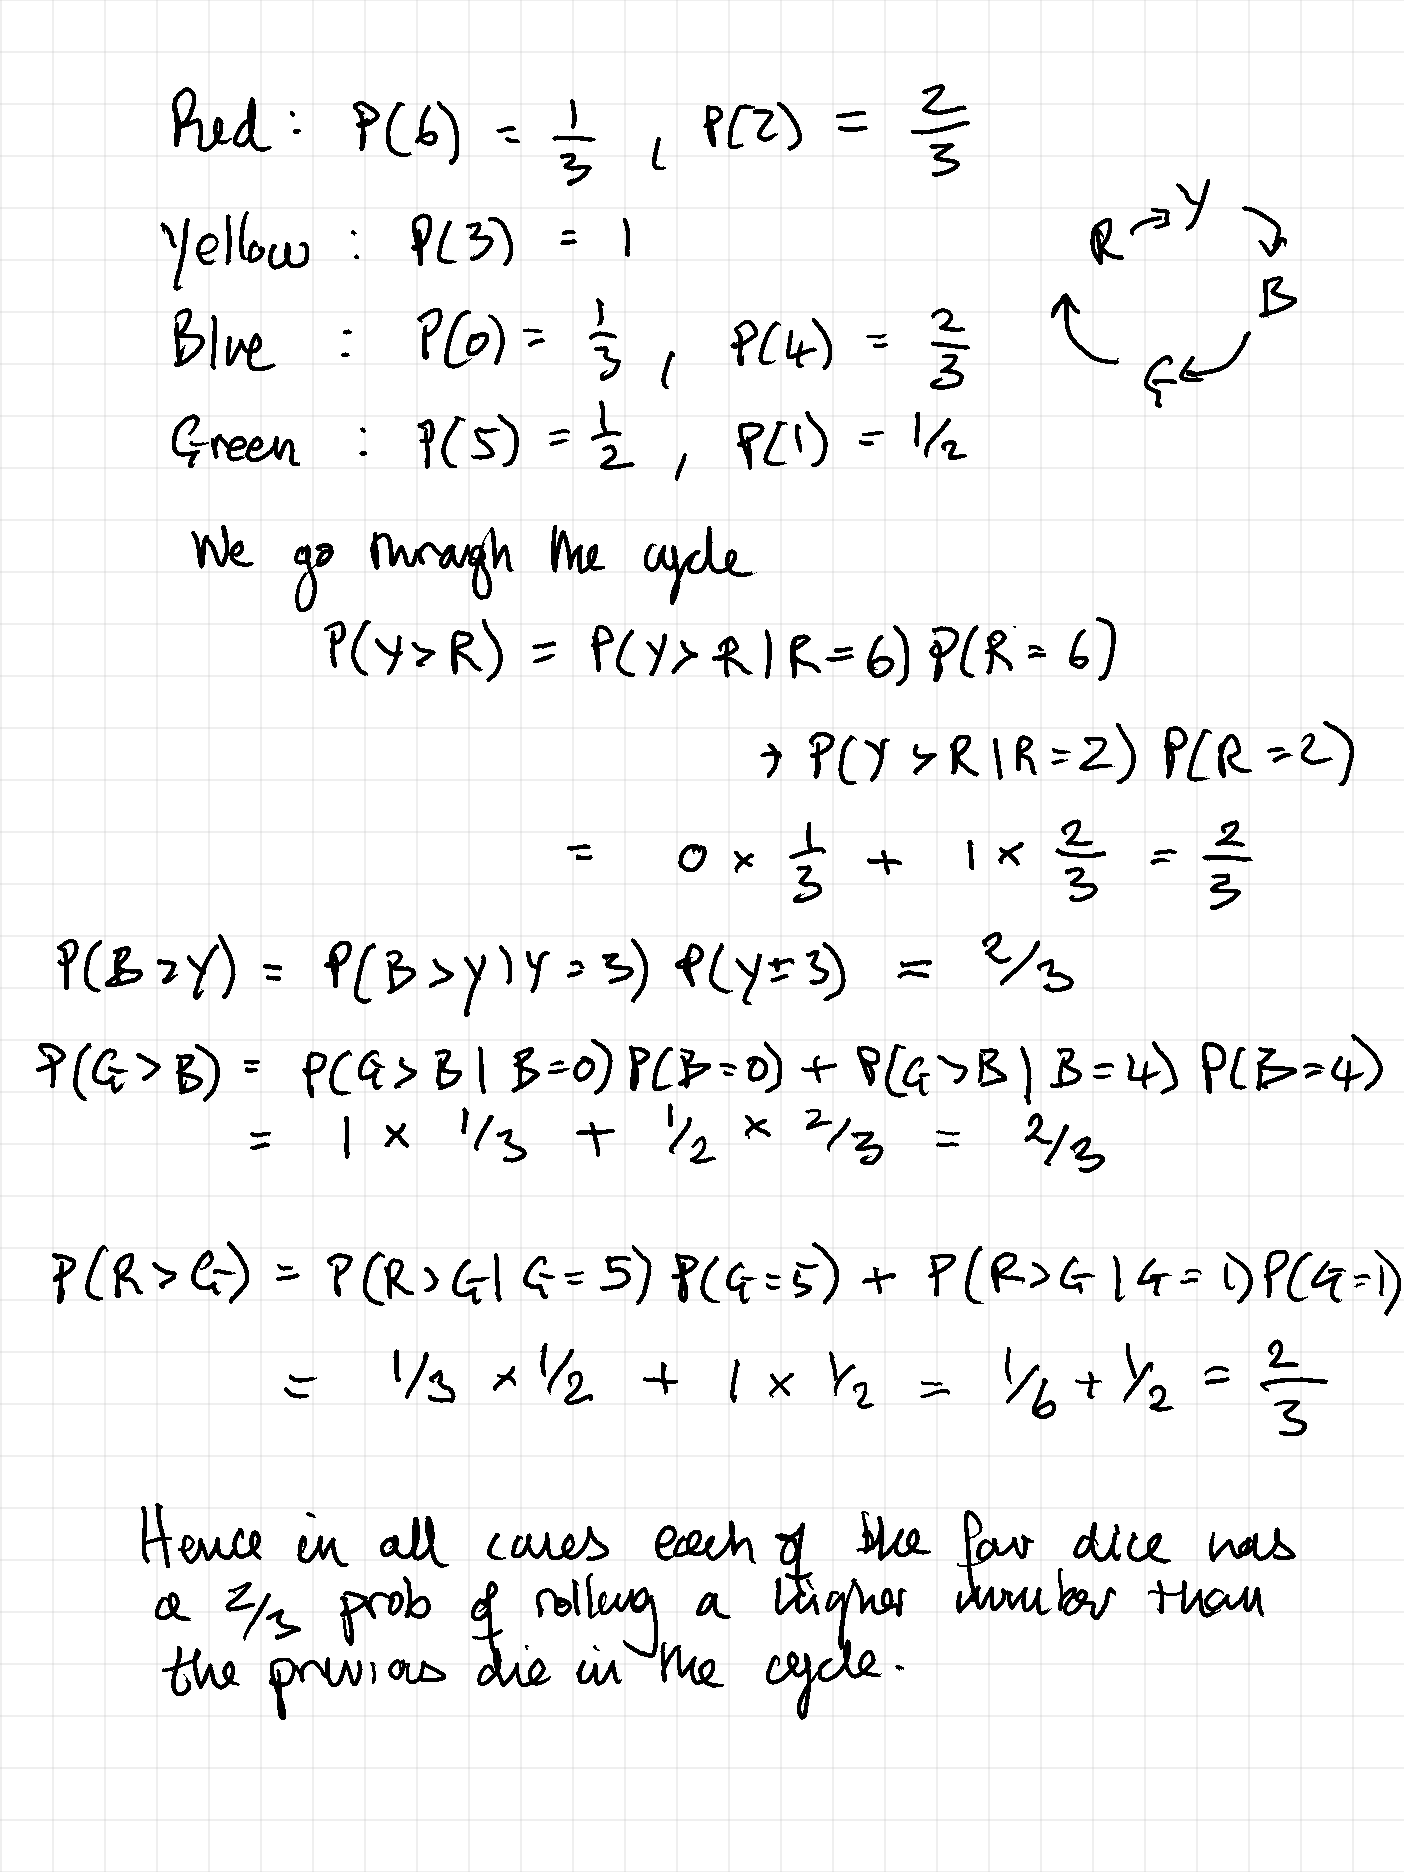 Red : P(6) = 1/3 , P(2) = 2/3
R → Y → B → G →
Yellow : P(3) = 1
Blue : P(0) = 1/3 , P(4) = 2/3
Green : P(5) = 1/2 , P(1) = 1/2
We go through the cycle
P(Y>R) = P(Y>R|R=6) P(R=6)
+ P(Y>R|R=2) P(R=2)
= 0 × 1/3 + 1 × 2/3 = 2/3
P(B>Y) = P(B>Y|Y=3) P(Y=3) = 2/3
P(G>B) = P(G>B|B=0) P(B=0) + P(G>B|B=4) P(B=4)
= 1 × 1/3 + 1/2 × 2/3 = 2/3
P(R>G) = P(R>G|G=5) P(G=5) + P(R>G|G=1) P(G=1)
= 1/3 × 1/2 + 1 × 1/2 = 1/6 + 1/2 = 2/3
Hence in all cases each of the four dice has
a 2/3 prob of rolling a higher number than
the previous die in the cycle.